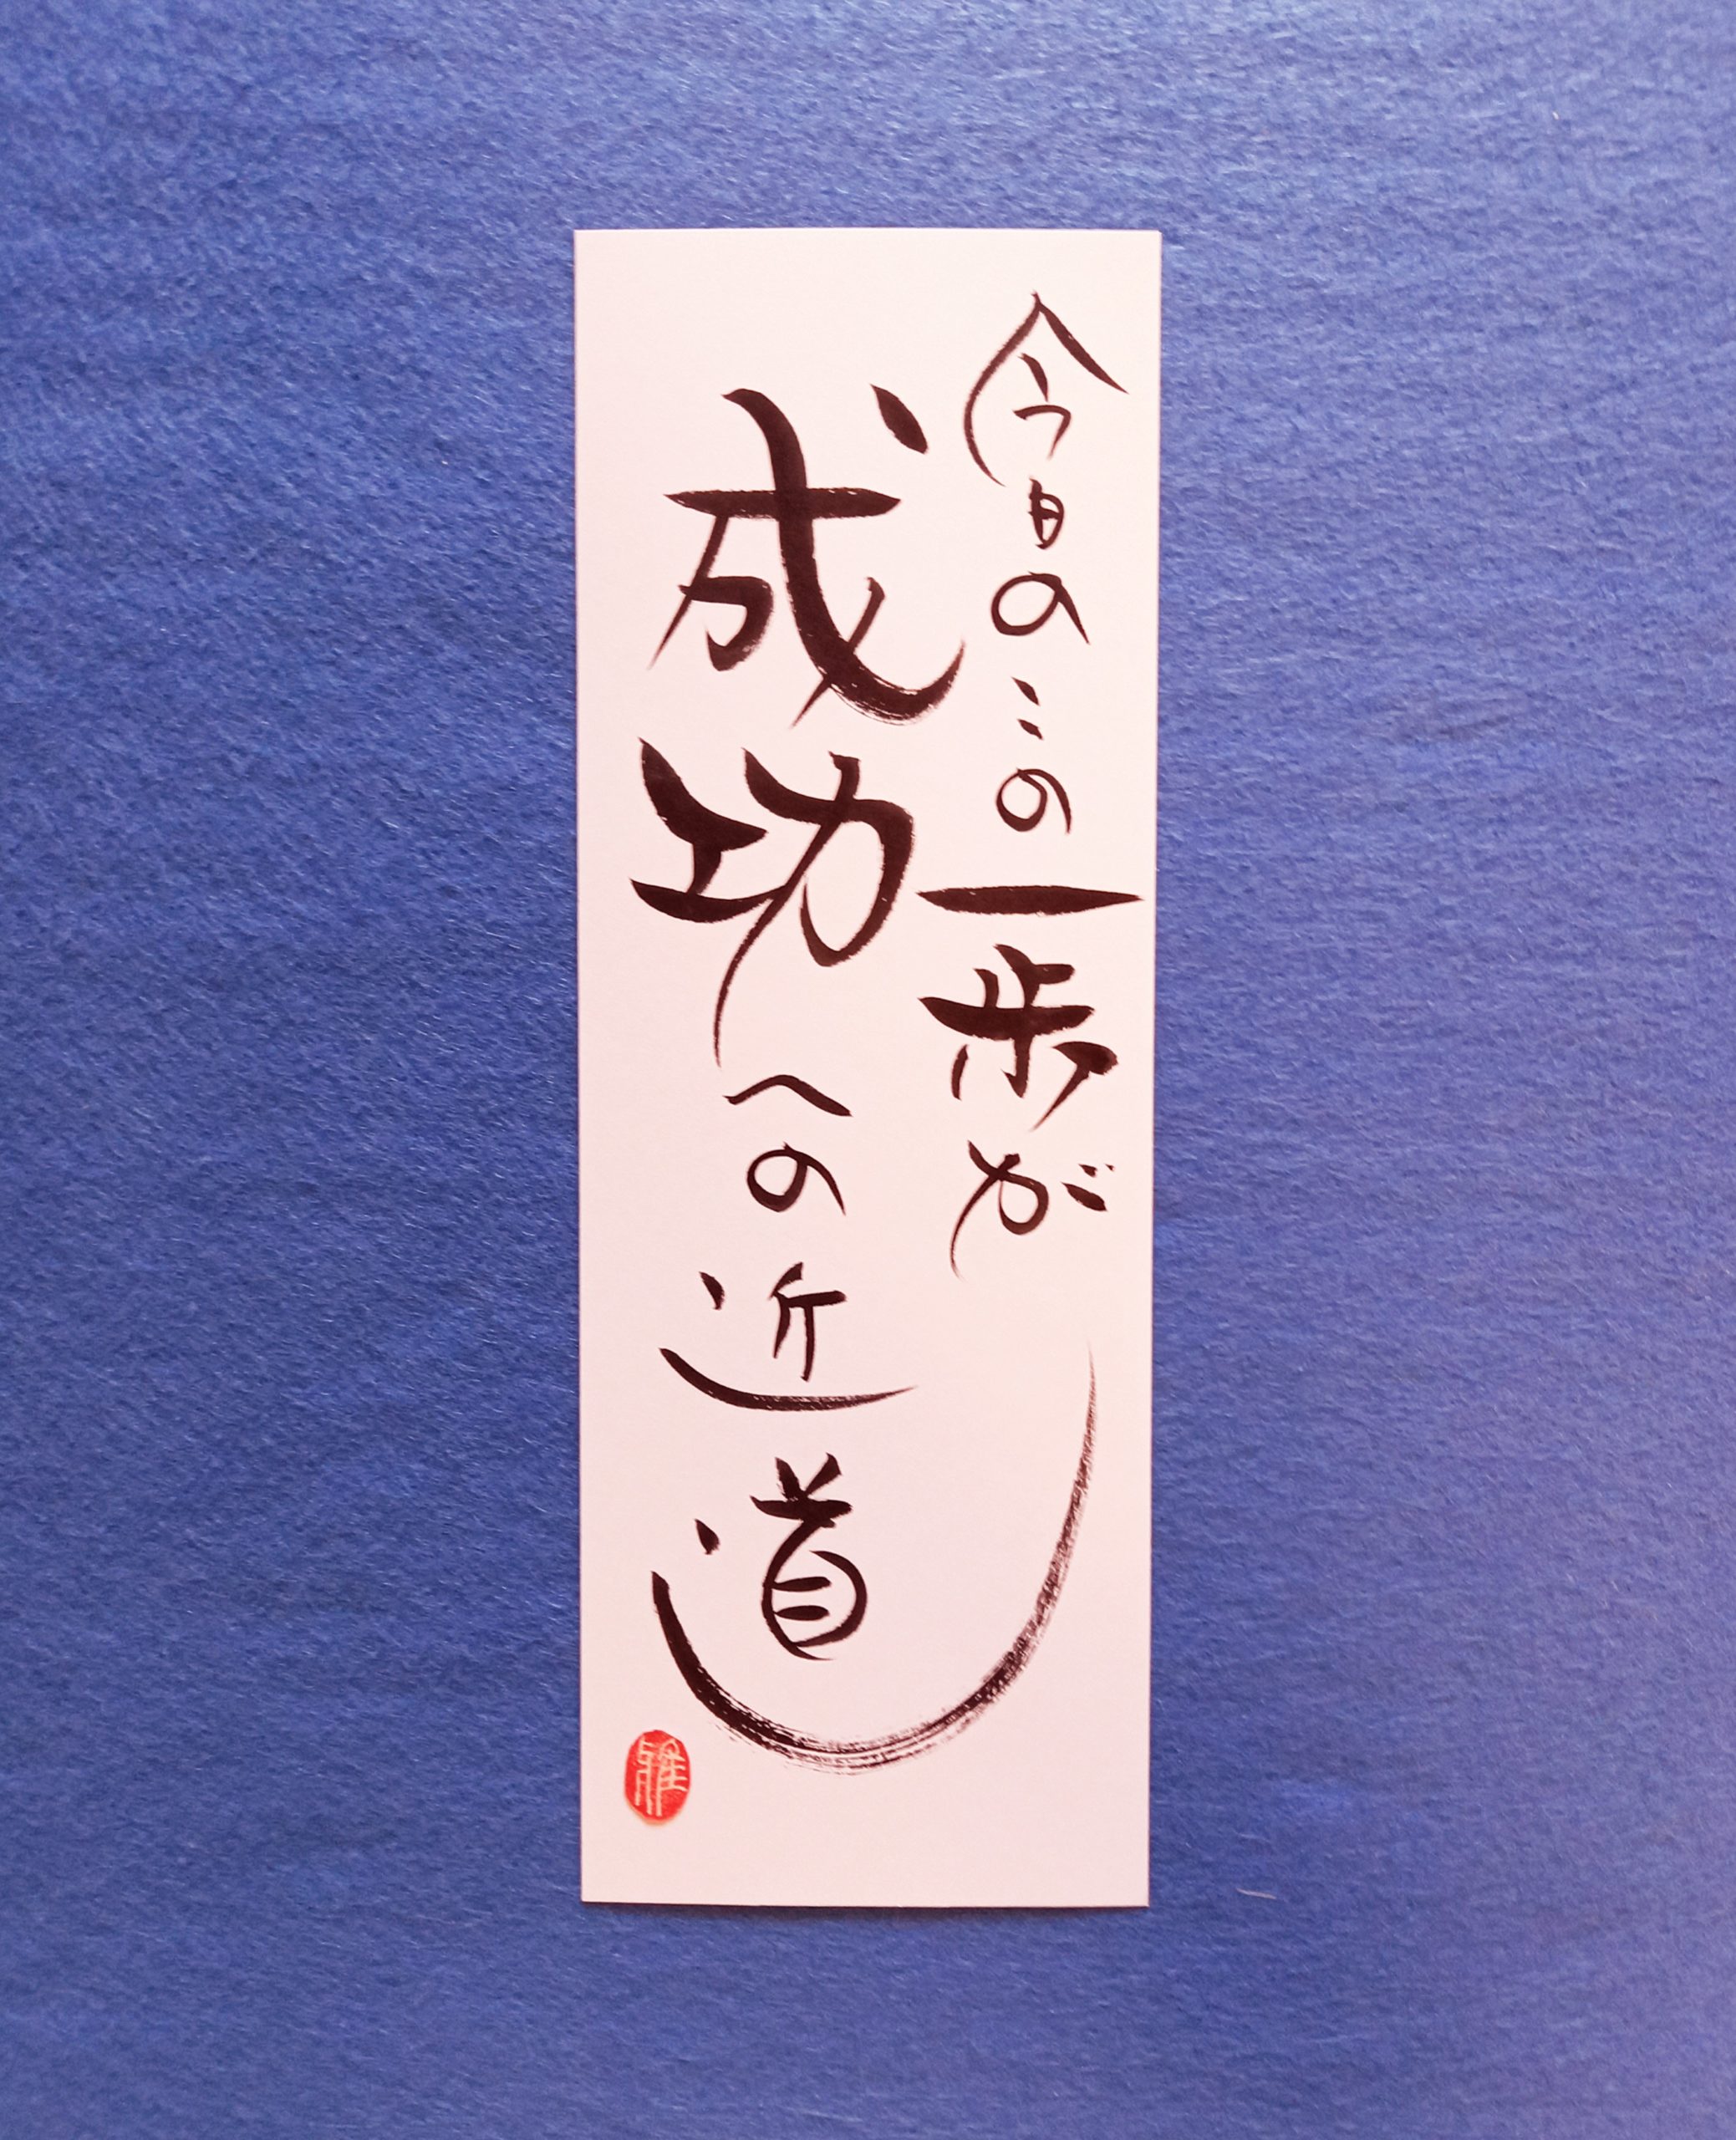 今日のこの一歩が
成功への近道
雅